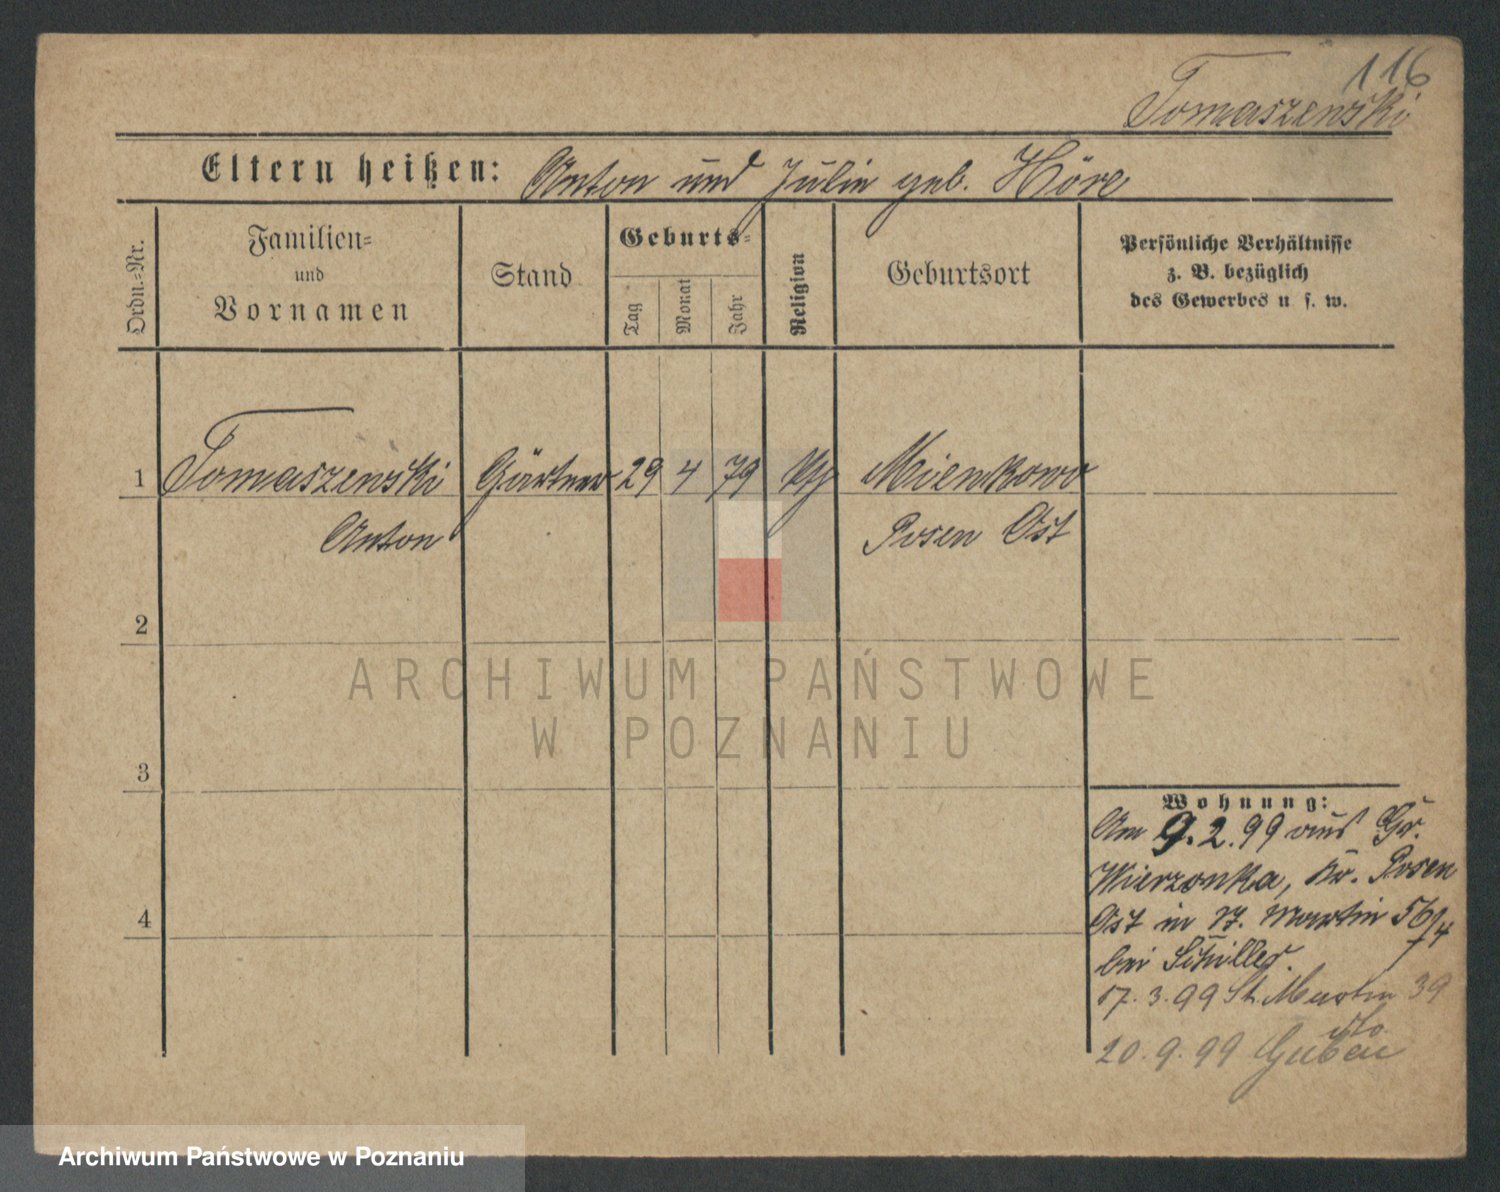 116
Tomaszewski
Eltern heißen: Anton und Julie geb. Höre
Ordn.-Nr.
Familien-
und
Vornamen
Stand
Geburts-
Tag
Monat
Jahr
Religion
Geburtsort
Persönliche Verhältnisse
z. B. bezüglich
des Gewerbes u s. w.
1 Tomaszewski Gärtner 29 4 79 Mienkowo
Anton Posen Ost
2
3
4
Wohnung:
Am 9.2.99 aus Gr.
Wierzonka, Kr. Posen
Ost in St. Martin 56/4
bei Schiller.
17.3.99 St. Martin 39
20.9.99 Guben
ARCHIWUM PAŃSTWOWE
W POZNANIU
Archiwum Państwowe w Poznaniu